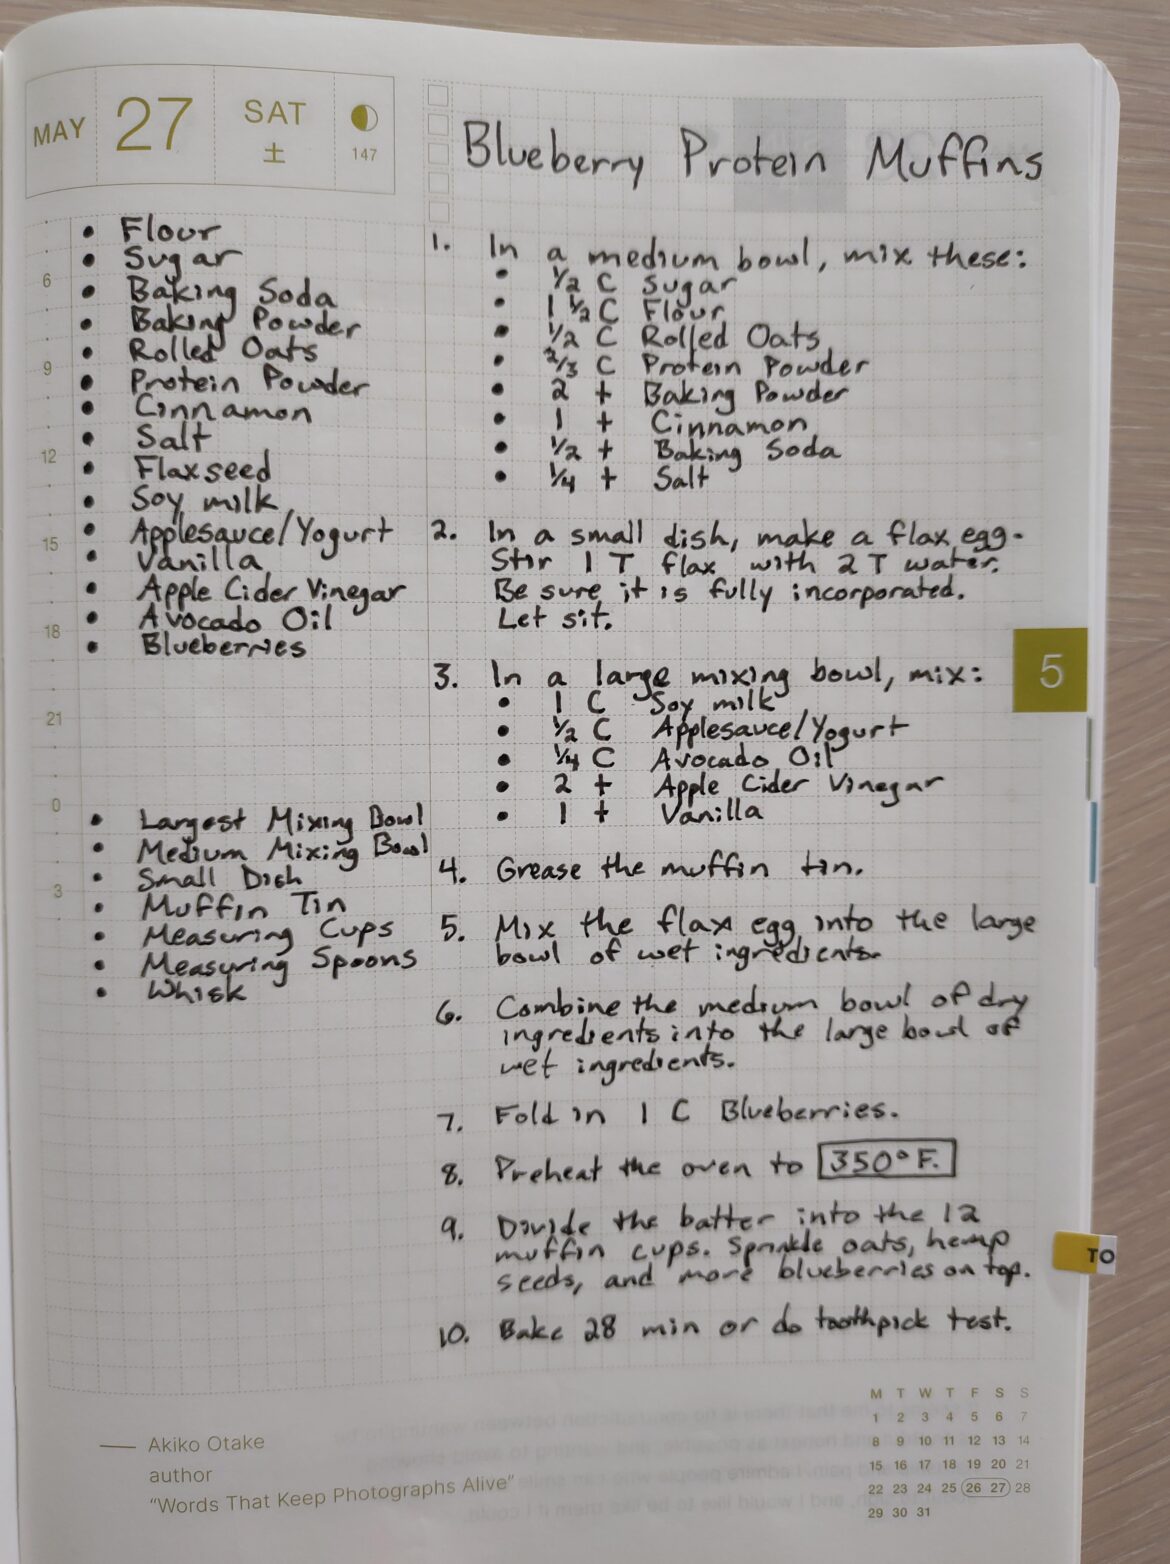 MAY 27 SAT
土 147
Blueberry Protein Muffins
• Flour
• Sugar
• Baking Soda
• Baking Powder
• Rolled Oats
• Protein Powder
• Cinnamon
• Salt
• Flaxseed
• Soy milk
• Applesauce/Yogurt
• Vanilla
• Apple Cider Vinegar
• Avocado Oil
• Blueberries
6
9
12
15
18
21
0
3
• Largest Mixing Bowl
• Medium Mixing Bowl
• Small Dish
• Muffin Tin
• Measuring Cups
• Measuring Spoons
• Whisk
1. In a medium bowl, mix these:
• 1/2 C Sugar
• 1 1/2 C Flour
• 1/2 C Rolled Oats
• 2/3 C Protein Powder
• 2 t Baking Powder
• 1 t Cinnamon
• 1/2 t Baking Soda
• 1/4 t Salt
2. In a small dish, make a flax egg.
Stir 1 T flax with 2 T water.
Be sure it is fully incorporated.
Let sit.
3. In a large mixing bowl, mix:
• 1 C Soy milk
• 1/2 C Applesauce/Yogurt
• 1/4 C Avocado Oil
• 2 t Apple Cider Vinegar
• 1 t Vanilla
4. Grease the muffin tin.
5. Mix the flax egg into the large
bowl of wet ingredients.
6. Combine the medium bowl of dry
ingredients into the large bowl of
wet ingredients.
7. Fold in 1 C Blueberries.
8. Preheat the oven to 350° F.
9. Divide the batter into the 12
muffin cups. Sprinkle oats, hemp
seeds, and more blueberries on top.
10. Bake 28 min or do toothpick test.
5
TO
— Akiko Otake
author
“Words That Keep Photographs Alive”
M T W T F S S
1 2 3 4 5 6 7
8 9 10 11 12 13 14
15 16 17 18 19 20 21
22 23 24 25 26 27 28
29 30 31